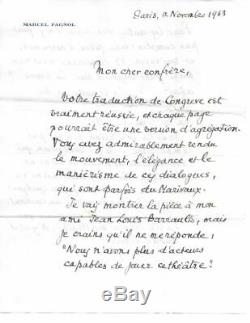 MARCEL PAGNOL
Paris, Novembre 1963
Mon cher confrère,
Votre traduction de Congreve est
vraiment réussie, et chaque page
pourrait être une version d'agrégation.
Vous avez admirablement rendu
le mouvement, l'élégance et le
maniérisme de ces dialogues,
qui sont parfois du Marivaux.
Je vais montrer la pièce à mon
ami Jean Louis Barrault, mais
je crains qu'il ne me réponde :
"Nous n'avons plus d'acteurs
capables de jouer ce théâtre."
ebay